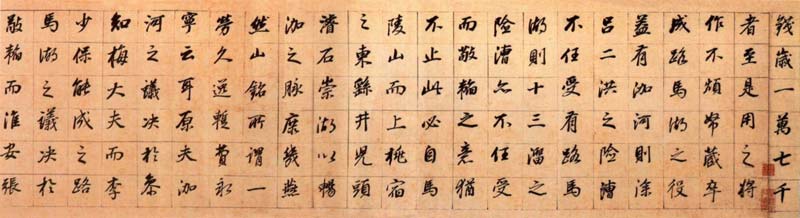 錢歲一萬七千
者至是用之將
作不煩帑藏卒
成路馬湖之役
益有泇河則除
呂二洪之險漕
不任受有路馬
湖則十三溜之
險漕亦不任受
而敬輪之意猶
不止此必自馬
陵山而上桃宿
之東繇井兒頭
濬石崇湖以暢
泇之脈庶幾燕
然山銘所謂一
勞久逸暫費永
寧云耳原夫泇
河之議决於叅
知梅大夫而李
少保能成之路
馬湖之議决於
敬輪而淮安張